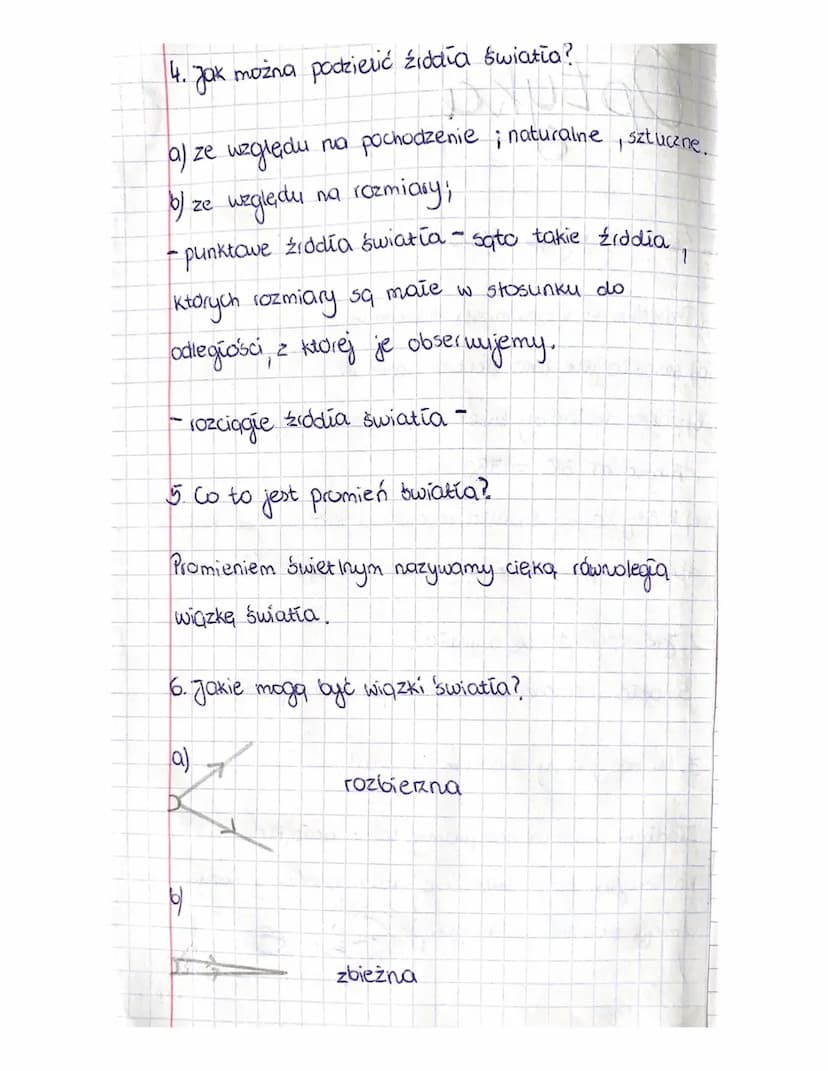 4. Jak można podzielić źródła światła?
a) ze względu na pochodzenie ; naturalne , sztuczne.
b) ze względu na rozmiary;
- punktowe źródła światła - sąto takie źródła ,
których rozmiary są małe w stosunku do
odległości, z której je obserwujemy.
- rozciągłe źródła światła -
5. Co to jest promień światła?
Promieniem świetlnym nazywamy cięką, równoległą
wiązkę światła.
6. Jakie mogą być wiązki światła?
a)
rozbierzna
b)
zbieżna